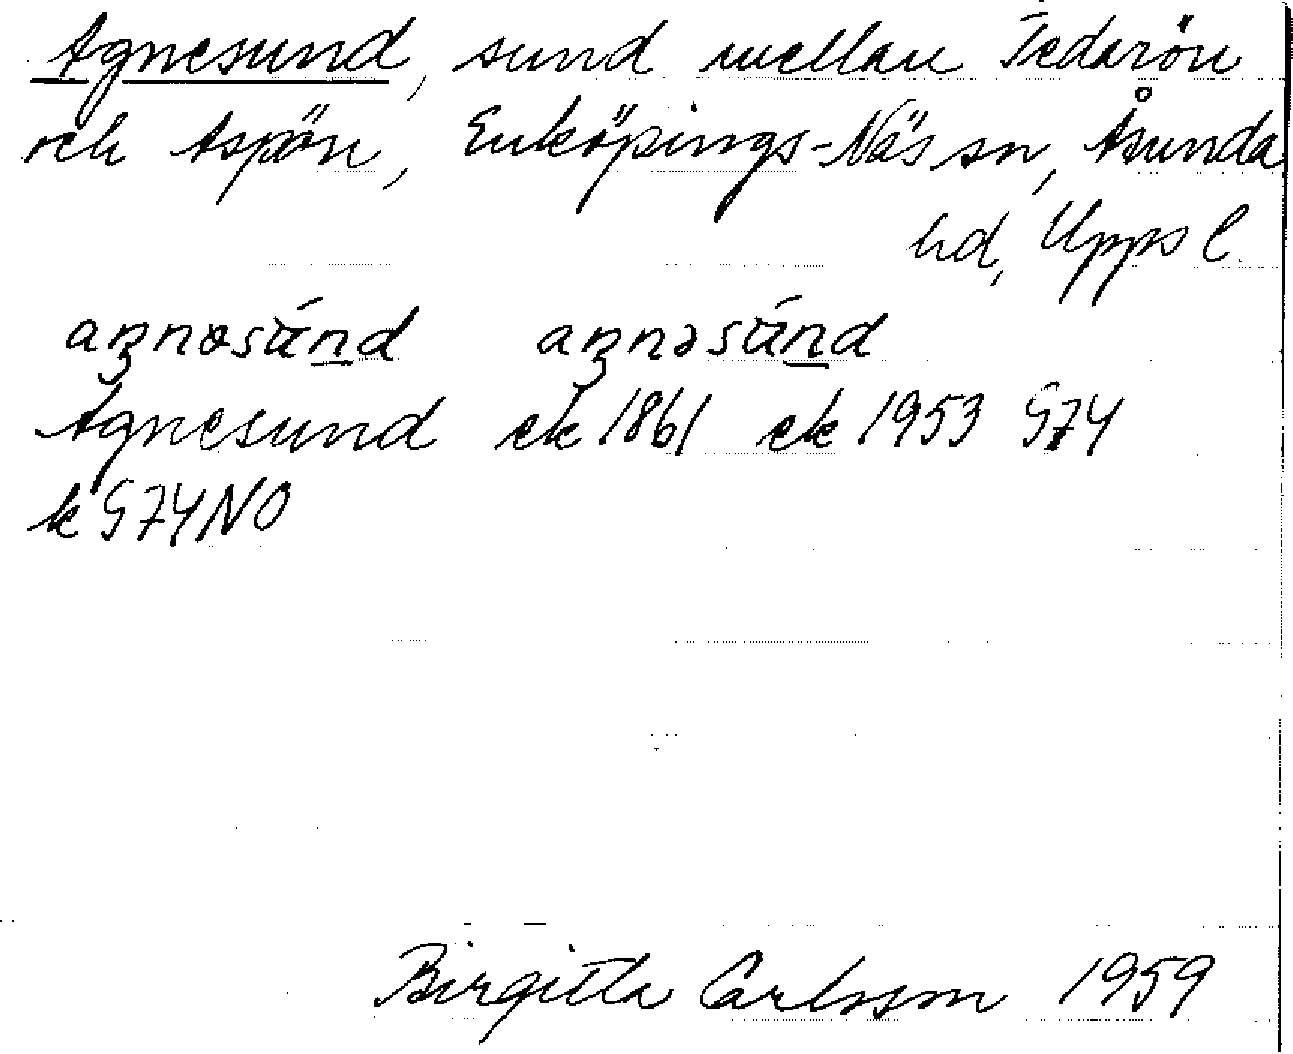 Agnesund, sund mellan Tedarön
och Aspön, Enköpings-Näs sn, Åsunda
hd, Upps l.
Agnesund ek 1861 ek 1953 G74
k G74NO
Birgitta Carlsson 1959